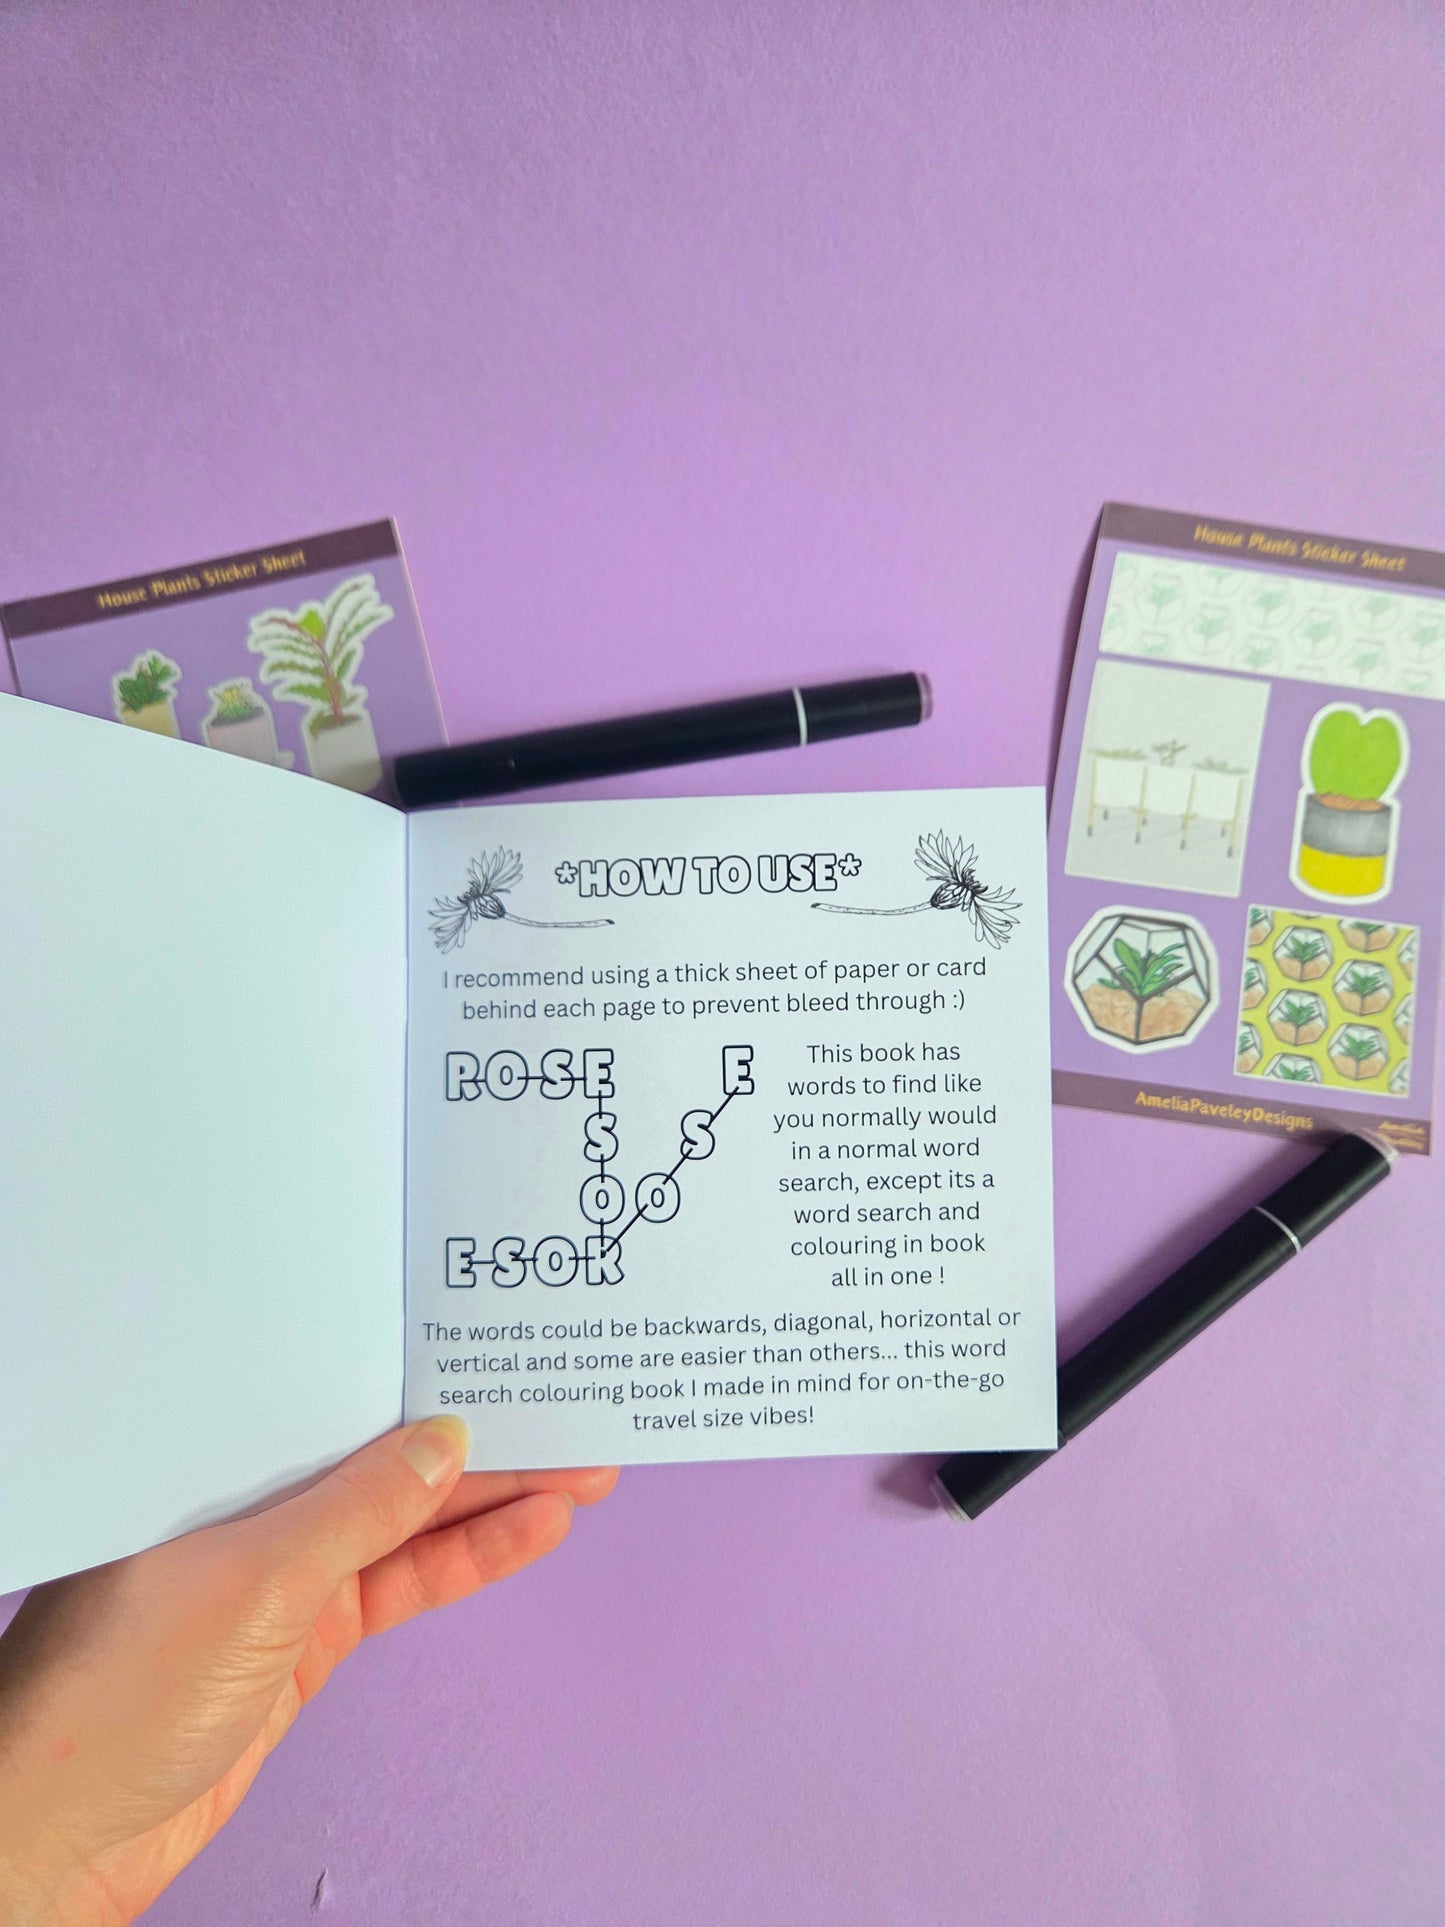 House Plants Sticker Sheet
House Plants Sticker Sheet
*HOW TO USE*
I recommend using a thick sheet of paper or card
behind each page to prevent bleed through :)
ROSE
S
O
ESOR
E
S
O
This book has
words to find like
you normally would
in a normal word
search, except its a
word search and
colouring in book
all in one !
The words could be backwards, diagonal, horizontal or
vertical and some are easier than others... this word
search colouring book I made in mind for on-the-go
travel size vibes!
AmeliaPaveleyDesigns